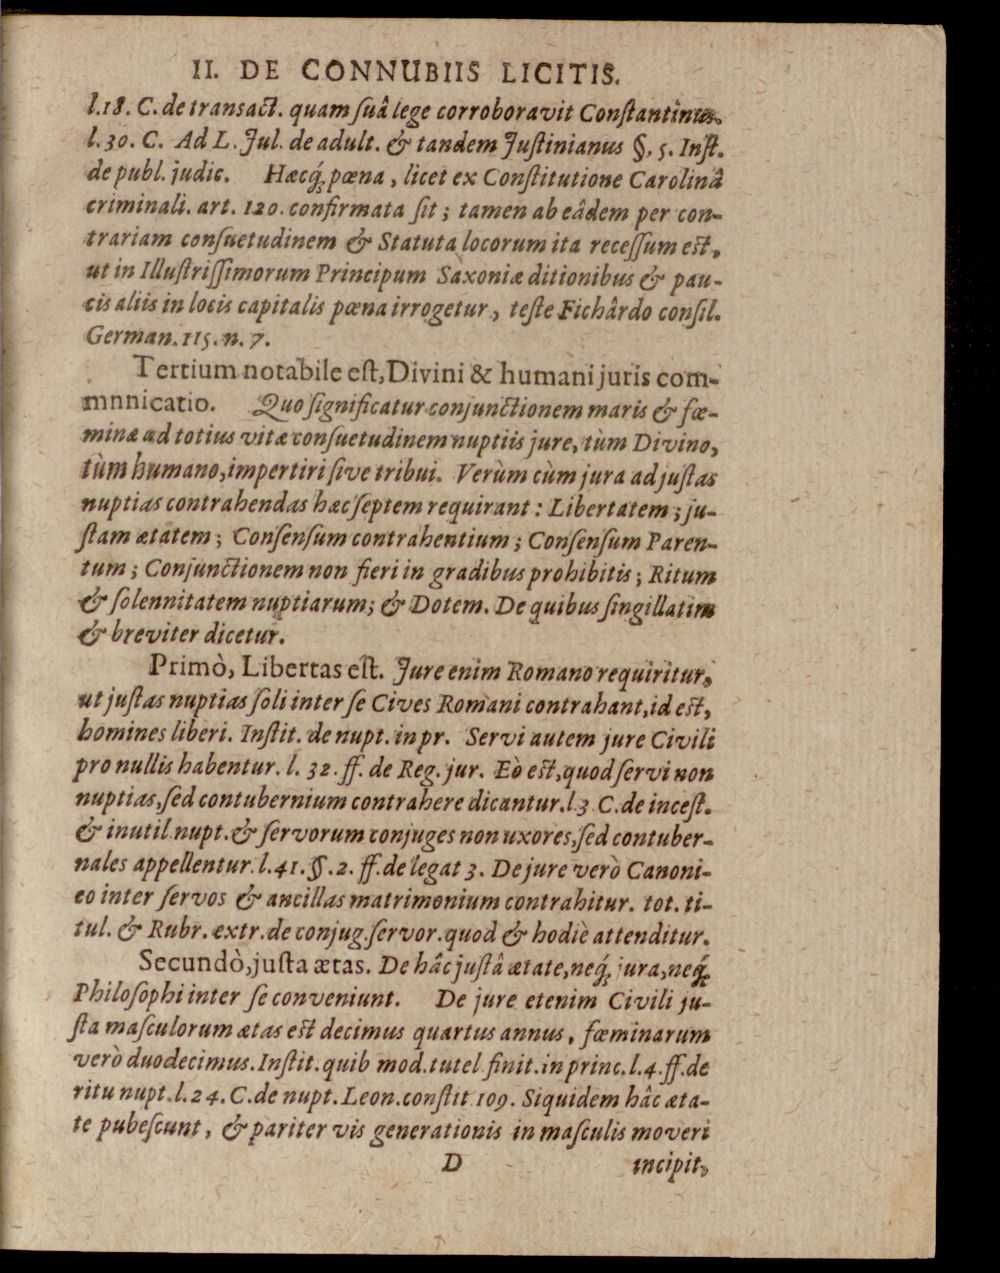 II. DE CONNUBIIS LICITIS.
l.18. C. de transact. quam ſuâ lege corroboravit Conſtantinus.
l.30. C. Ad L. Jul. de adult. & tandem Juſtinianus §. 5. Inſt.
de publ. judic. Hæcq́; pœna, licet ex Conſtitutione Carolinâ
criminali. art. 120. confirmata ſit; tamen ab eâdem per con-
trariam conſuetudinem & Statuta locorum ita receſſum eſt,
ut in Illuſtriſſimorum Principum Saxoniæ ditionibus & pau-
cis aliis in locis capitalis pœna irrogetur, teſte Fichârdo conſil.
German. 115. n. 7.
Tertium notabile eſt, Divini & humani juris com-
mnnicatio. Quo ſignificatur conjunctionem maris & fœ-
minæ ad totius vitæ conſuetudinem nuptiis jure, tùm Divino,
tùm humano, impertiri ſive tribui. Verùm cùm jura ad juſtas
nuptias contrahendas hæc ſeptem requirant: Libertatem; ju-
ſtam ætatem; Conſenſum contrahentium; Conſenſum Paren-
tum; Conjunctionem non fieri in gradibus prohibitis; Ritum
& ſolennitatem nuptiarum; & Dotem. De quibus ſingillatim
& breviter dicetur.
Primò, Libertas eſt. Jure enim Romano requiritur,
ut juſtas nuptias ſoli inter ſe Cives Romani contrahant, id eſt,
homines liberi. Inſtit. de nupt. in pr. Servi autem jure Civili
pro nullis habentur. l. 32. ff. de Reg. jur. Eò eſt, quod ſervi non
nuptias, ſed contubernium contrahere dicantur. l 3 C. de inceſt.
& inutil. nupt. & ſervorum conjuges non uxores, ſed contuber-
nales appellentur. l. 41. §. 2. ff. de legat 3. De jure verò Canoni-
co inter ſervos & ancillas matrimonium contrahitur. tot. ti-
tul. & Rubr. extr. de conjug. ſervor. quod & hodiè attenditur.
Secundò, juſta ætas. De hâc juſtâ ætate, neq́; jura, neq́;
Philoſophi inter ſe conveniunt. De jure etenim Civili ju-
ſta maſculorum ætas eſt decimus quartus annus, fœminarum
verò duodecimus. Inſtit. quib mod. tutel finit. in princ. l. 4. ff. de
ritu nupt. l. 24. C. de nupt. Leon. conſtit 109. Siquidem hâc æta-
te pubeſcunt, & pariter vis generationis in maſculis moveri
D incipit,